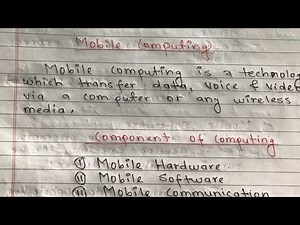 Mobile Computing
Mobile computing is a technolog
which transfer data, voice & video
via a computer or any wireless
media.
Component of computing
(i) Mobile Hardware
(ii) Mobile Software
(iii) Mobile communication